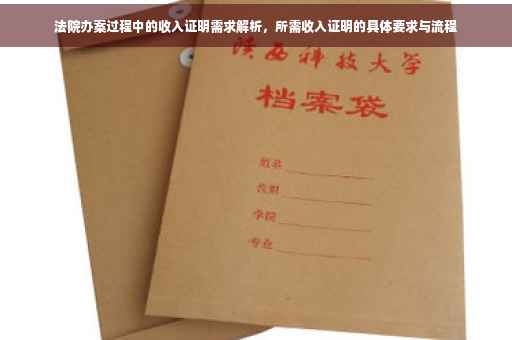 法院办案过程中的收入证明需求解析，所需收入证明的具体要求与流程
陕西科技大学
档案袋
姓名
学院
专业